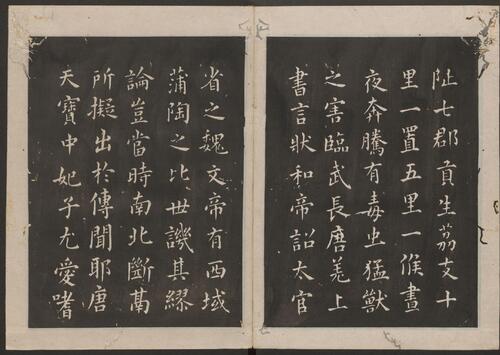 阯七郡貢生荔支十
里一置五里一候晝
夜奔騰有毒虫猛獸
之害臨武長唐羌上
書言狀和帝詔太官
省之魏文帝有西域
蒲陶之比世譏其繆
論豈當時南北斷䦨
所擬出於傳聞耶唐
天寶中妃子尤愛嗜